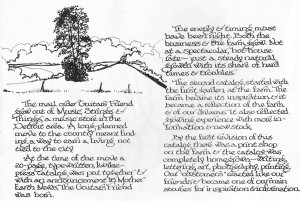 The mail order Guitar's Friend
grew out of Music, Strings &
Things, a music store in the
Detroit area. A long-planned
move to the country meant find-
ing a way to earn a living, not
tied to the city.
At the time of the move a
page, type-written, 
press catalog was put together &
with an announcement in Mother
Earth News, The Guitar's Friend
was born.
The energy & timing must
have been right. Both the
business & the farm grew. Not
at a spectacular, hot-house
rate – just a steady natural
growth with its share of hard
times & troubles.
The second catalog started with
the first garden at the farm. The
farm became its inspiration & it
became a reflection of the farm
& of our dreams. It also reflected
growing experience with more in-
formation & new stock.
By the first revision of this
catalog there was a print shop
on the farm & the catalog was
completely homegrown – writing,
lettering, art, photography, printing.
Our "customers" acted like our
friends & became one of our main
sources for inspiration & information.